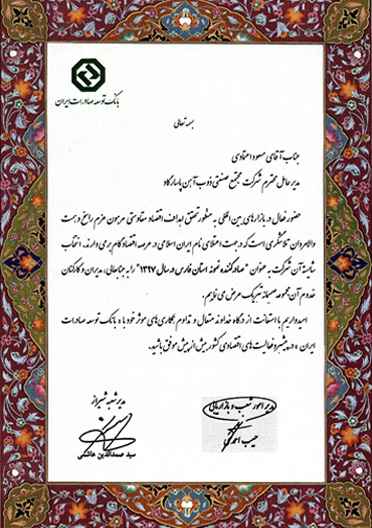 بانک توسعه صادرات ایران
بسمه تعالی
جناب آقای مسعود اعتمادی
مدیرعامل محترم شرکت مجتمع صنعتی ذوب آهن پاسارگاد
حضور فعال در بازارهای بین المللی به منظور تحقق اهداف اقتصاد مقاومتی مرهون عزم راسخ و همت
والامردان تلاشگری است که در جهت اعتلای نام ایران اسلامی در عرصه اقتصاد گام برمی دارند. انتخاب
شایسته آن شرکت به عنوان "صادرکننده نمونه استان فارس در سال ۱۳۹۷" را به جنابعالی، مدیران و کارکنان
خدوم آن مجموعه صمیمانه تبریک عرض می نماییم.
امیدواریم با استعانت از درگاه خداوند متعال و تداوم همکاری های موثر خود با « بانک توسعه صادرات
ایران » در پیشبرد فعالیت های اقتصادی کشور بیش از پیش موفق باشید.
مدیر امور شعب و بازاریابی
مدیر شعبه شیراز
سید صمدالدین هاشمی